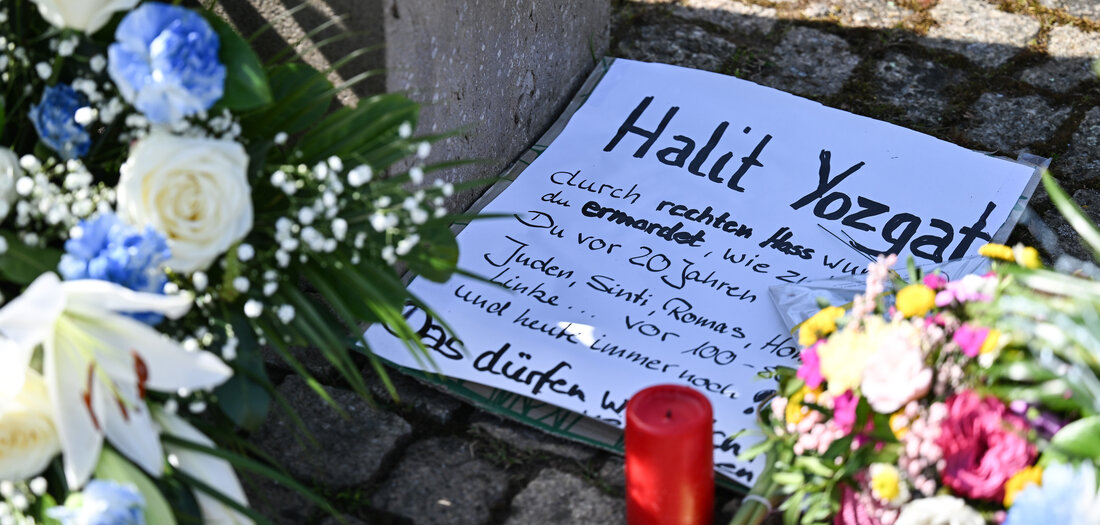 Halit Yozgat
durch rechten Hass wur
du ermordet, wie
Du vor 20 Jahren
Juden, Sinti, Romas,
Linke... vor 100-
und heute immer noch
Das dürfen